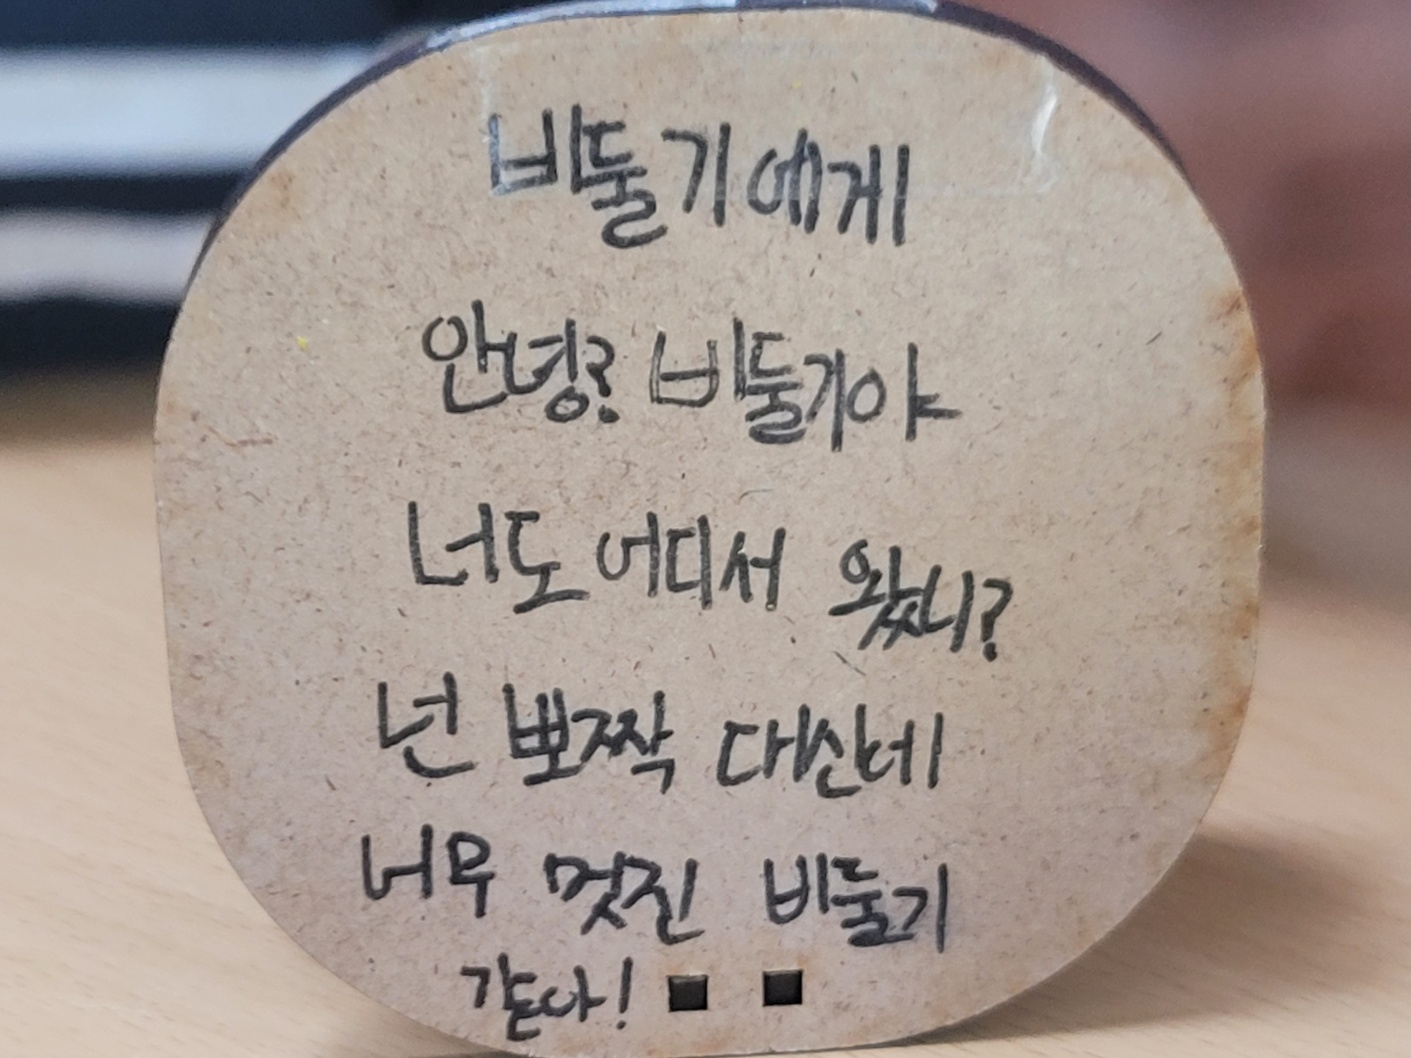 비둘기에게
안녕? 비둘기야
너도 어디서 왔니?
넌 뽀짝 대신네
너무 멋진 비둘기
같아!